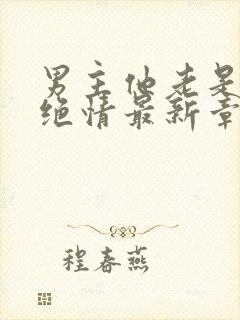 男主他老是
绝情最新章
程春燕